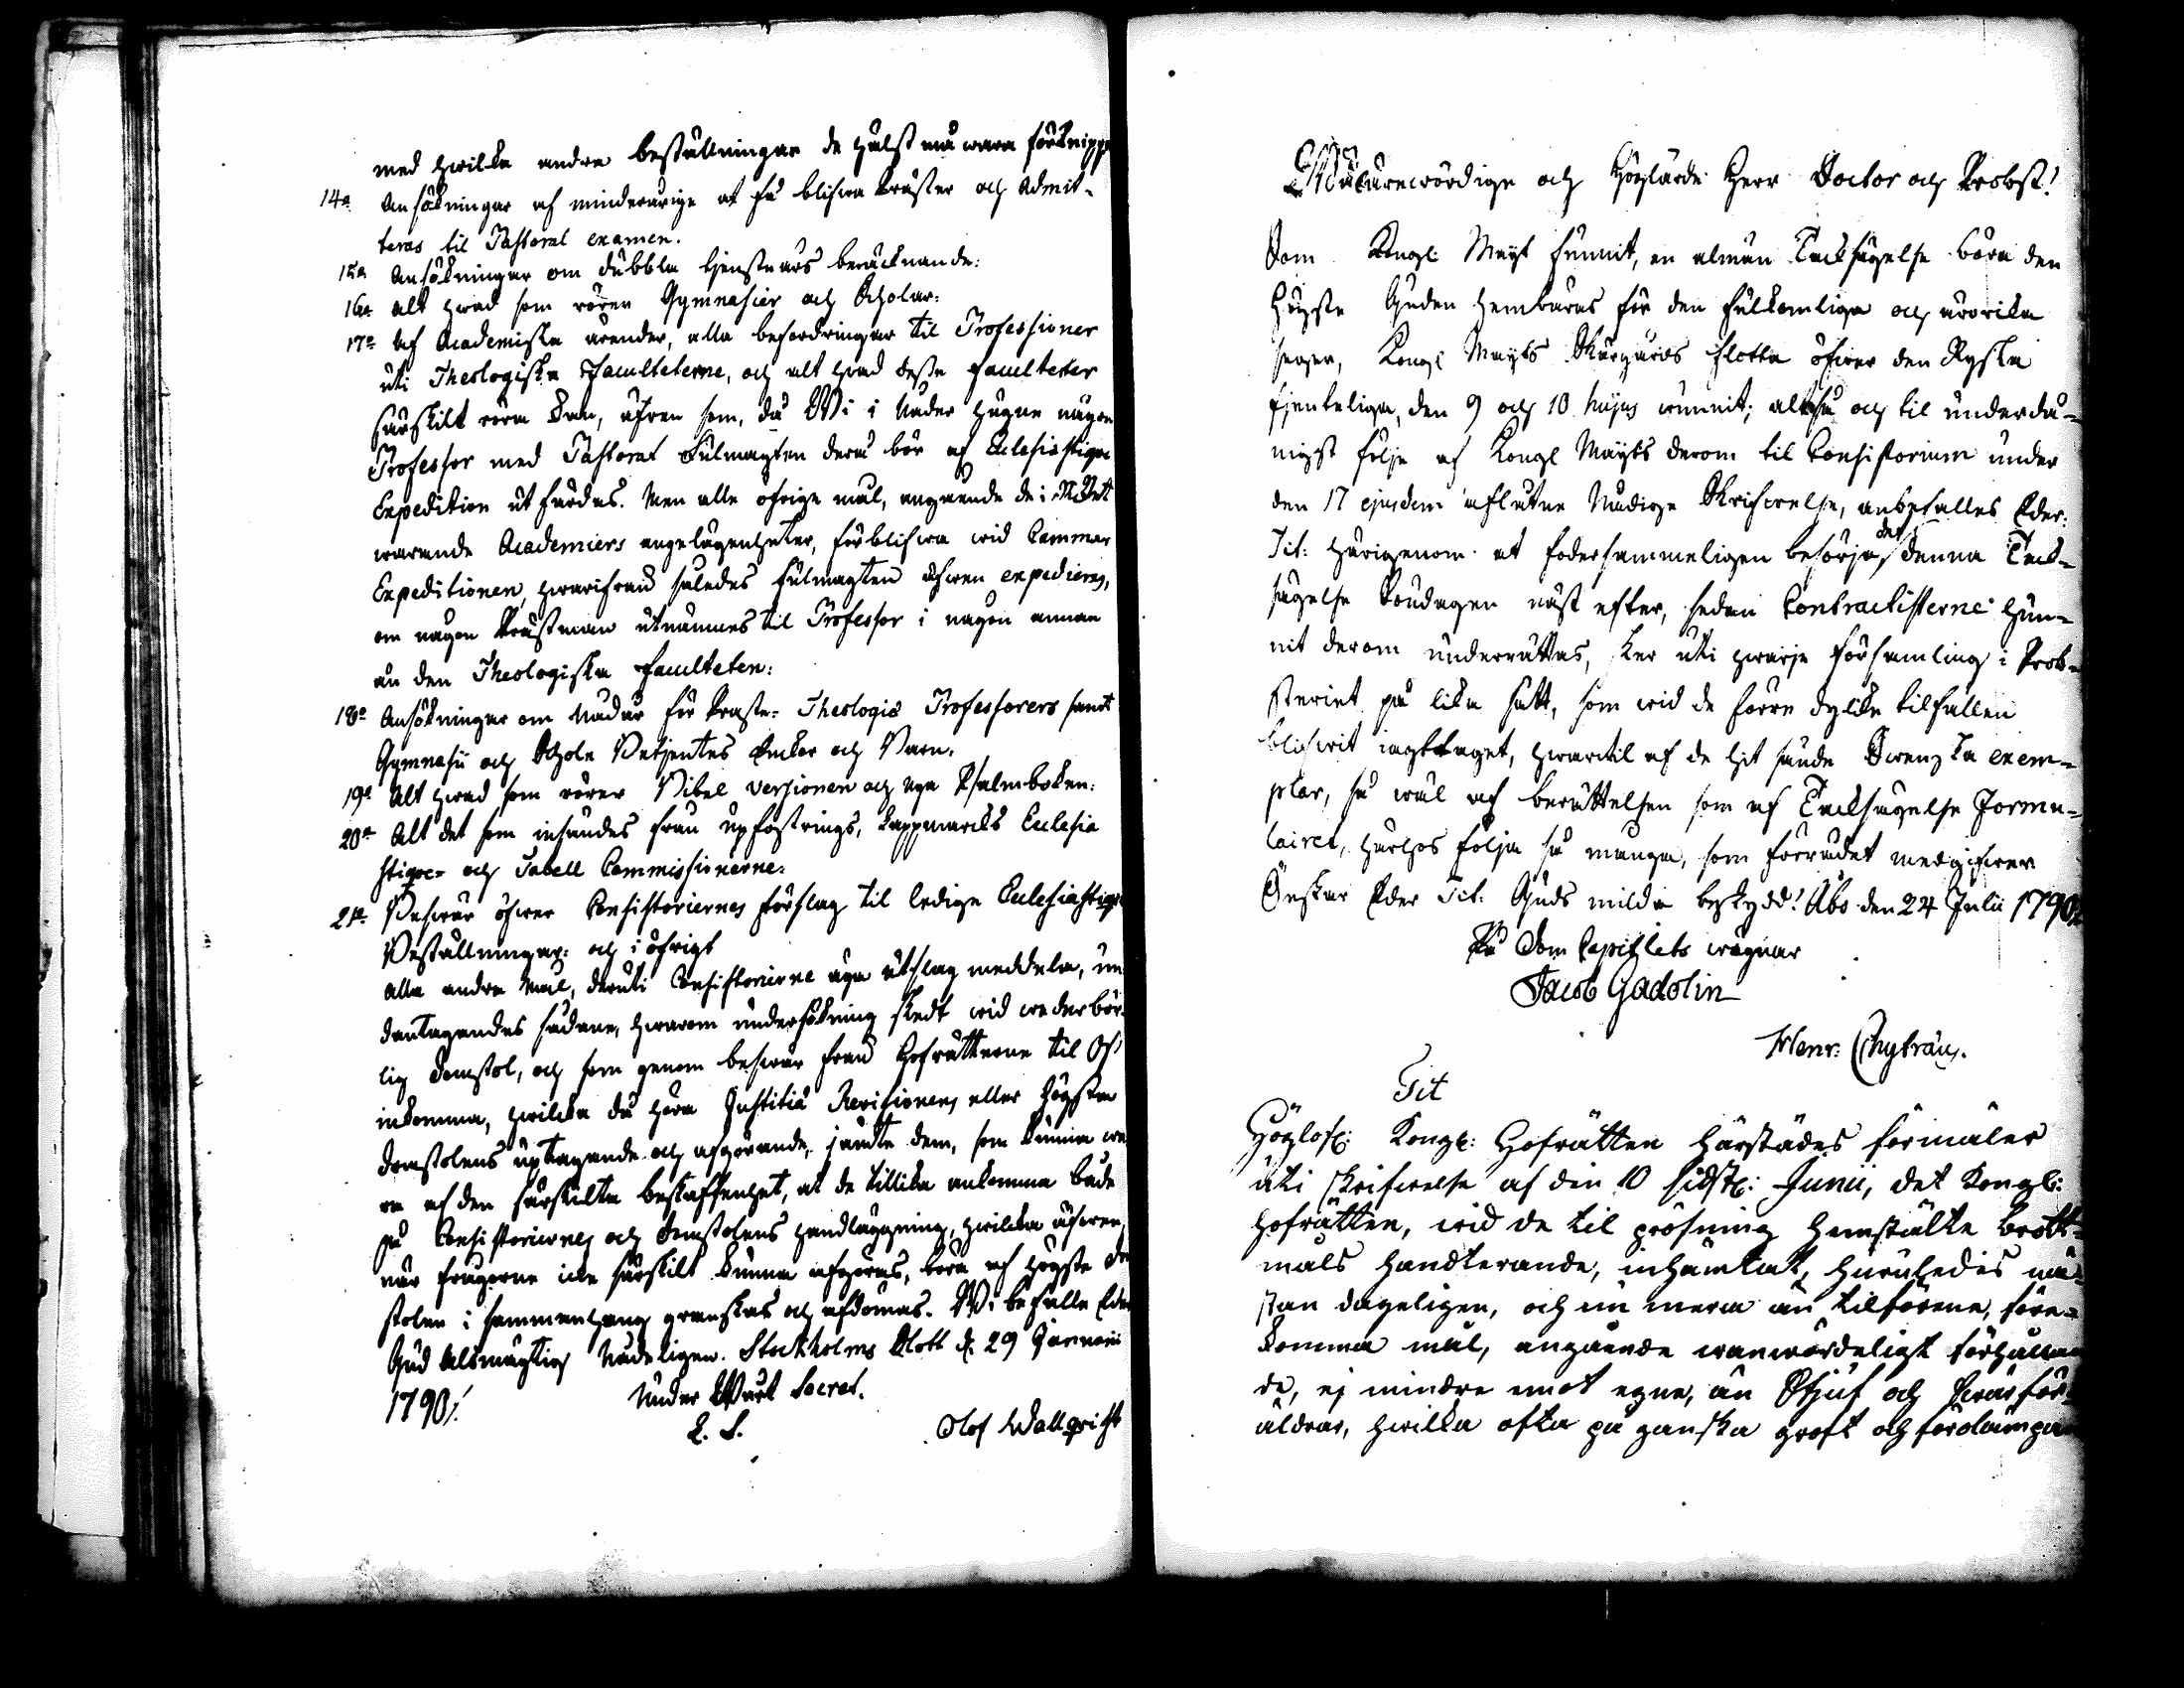 med hwilka andra beställningar de hälst må wara förknippa
14a Ansökningar af minderårige at få blifwa Präster och Admit-
teras til Pastoral examen.
15a Ansökningar om dubbla tjenstears beräcknande:
16a Alt hwad som rörer Gymnasier och Scholar:
17a Af Academiska ärender, alla befordringar til Professioner
uti Theologiska Faculteterne, och alt hwad desse Faculteter
särskilt röra kan, äfwen som, då Wi i Nåder hugne någon
Professor med Pastorat Fulmagten derå bör af Eclesiastique
Expedition utfärdas. Men alla öfrige mål, angående de i Riket
warande Academiers angelägenheter, förblifwa wid Cammar
Expeditionen, hwarifrån således fulmagten äfwen expedieres,
om någon Prästman utnämnes til Professor i någon annan
än den Theologiska Faculteten:
18a Ansökningar om Nadår för Präste- Theologiæ Professorers samt
Gymnasii och Schole Betjentes Enkor och Barn.
19a Alt hwad som rörer Bibel versionen och nya Psalmboken:
20a Alt det som insändes från upfostrings, Lappmarcks Eclesia
stique- och Tabell Commissionerne:
21a Beswär öfwer Consistoriernes förslag til ledige Eclesiastique
Beställningar: och i öfrigt
Alla andra Mål, deruti Consistorierne äga utslag meddela, un
dantagandes sådane, hwarom undersökning skedt wid wederbör-
lig Domstol, och som genom beswär från Hofrätterne til Oss
inkomma, hwilka då höra Justitiæ Revisionens eller Högsta
Domstolens uptagande och afgörande, jemte dem, som kunna wa
ra af den särskilta beskaffenhet, at de tillika ankomma både
på Consistoriernes och Domstolens handläggning, hwilka äfwen,
när frågorne icke särskilt kunna afgöras, böra af Högste Dom
stolen i sammanhang granskas och afdömas. Wi befalle Eder
Gud Alsmägtig Nådeligen. Stockholms Slott d. 29 Januarii
1790.
Under Wart Secret.
L. S.
Olof Wallqvist
Wälärewördige och Höglärde Herr Doctor och Probst!
Som Kongl Mayt funnit, en alman Tacksägelse böra den
Högste Guden hembäras för den fulkomliga och ärorika
seger, Kongl Mayts Skärgårds flotta öfwer den Ryska
fjenteliga, den 9 och 10 hujus wunnit; altså och til underdå-
nigst följe af Kongl Mayts derom til Consistorium under
den 17 ejusdem aflåtne Nådige Skrifwelse, anbefalles Eder
Tit: härigenom at fodersammeligen besörja det denna Tack-
sägelse Söndagen näst efter, sedan Contractisterne hun-
nit derom underrättas, sker uti hwarje församling i Prob-
steriet på lika sätt, som wid de förre dylike tilfällen
blifwit iagttaget, hwartil af de hit sände Swenska exem-
plar, så wäl af berättelsen som af Tacksägelse Formu-
lairet, härhos följa så många, som förrådet medgifwer
Önskar Eder Tit: Guds milda beskydd! Åbo den 24 Julii 1790.
På Dom Capitlets wägnar
Jacob Gadolin
Henr: Chytræus.
Tit
Höglofl: Kongl: Hofrätten härstädes förmäler
uti skrifwelse af den 10 sidstl: Junii, det Kongl:
Hofrätten, wid de til pröfning hemstälte brott-
måls handterande, inhämtat, huruledes nä-
stan dageligen, och nu mera än tilförene, före-
komma mål, angående wanwördeligt förhållan
de, ej mindre emot egne, än Stjuf och Swärför-
äldrar, hwilka ofta på ganska groft och förolämpan